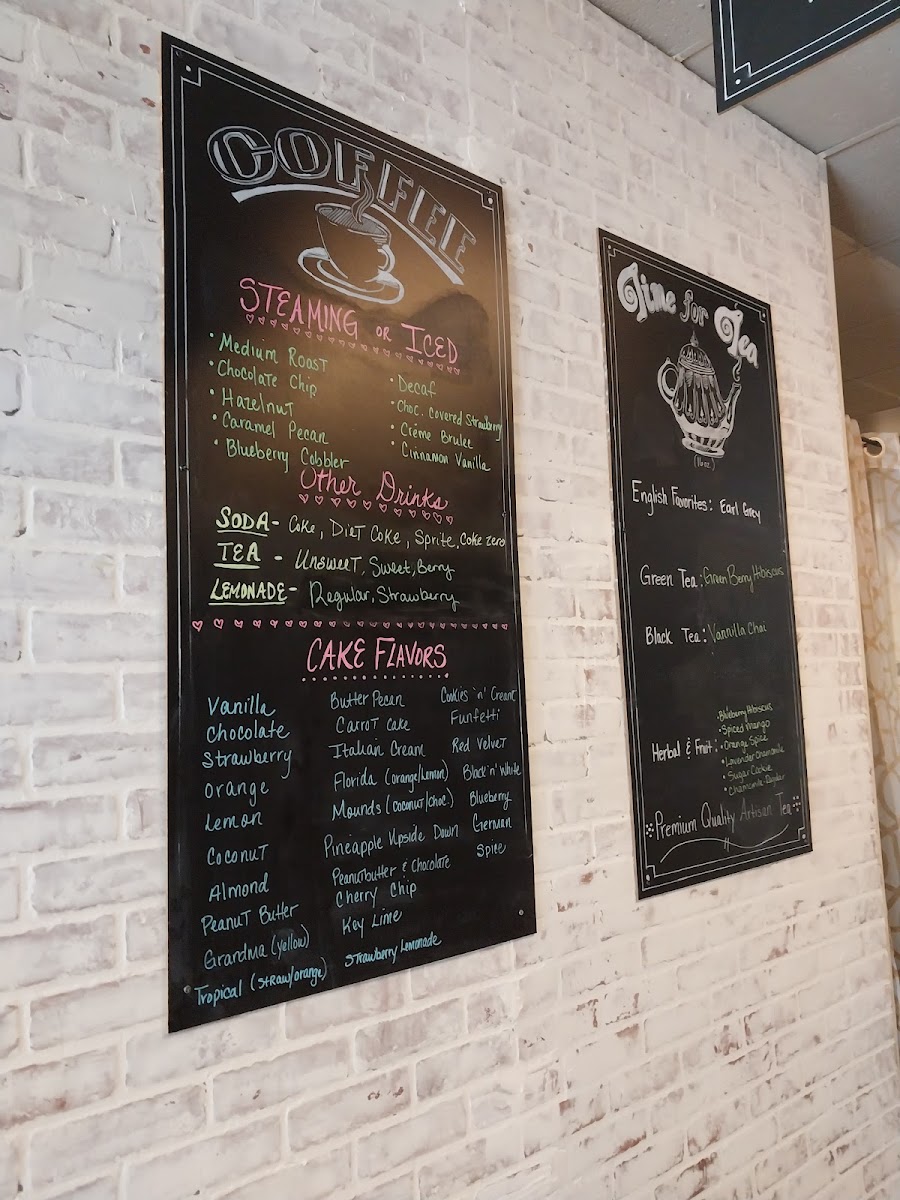 COFFEE
STEAMING or ICED
• Medium Roast
• Chocolate Chip
• Hazelnut
• Caramel Pecan
• Blueberry Cobbler
• Decaf
• Choc. Covered Strawberry
• Créme Brulee
• Cinnamon Vanilla
Other Drinks
SODA - Coke, Diet Coke, Sprite, Coke Zero
TEA - Unsweet, Sweet, Berry
LEMONADE - Regular, Strawberry
CAKE FLAVORS
Vanilla
Chocolate
Strawberry
Orange
Lemon
Coconut
Almond
Peanut Butter
Grandma (yellow)
Tropical (straw/orange)
Butter Pecan
Carrot Cake
Italian Cream
Florida (orange/lemon)
Mounds (coconut/choc.)
Pineapple Upside Down
Peanutbutter & Chocolate
Cherry Chip
Key Lime
Strawberry Lemonade
Cookies 'n' Cream
Funfetti
Red Velvet
Black 'n' White
Blueberry
German
Spice
Time for Tea
(16 oz.)
English Favorites: Earl Grey
Green Tea: Green Berry Hibiscus
Black Tea: Vannilla Chai
Herbal & Fruit:
• Blueberry Hibiscus
• Spiced Mango
• Orange Spice
• Lavender Chamomile
• Sugar Cookie
• Chamomile-Regular
Premium Quality Artisan Tea